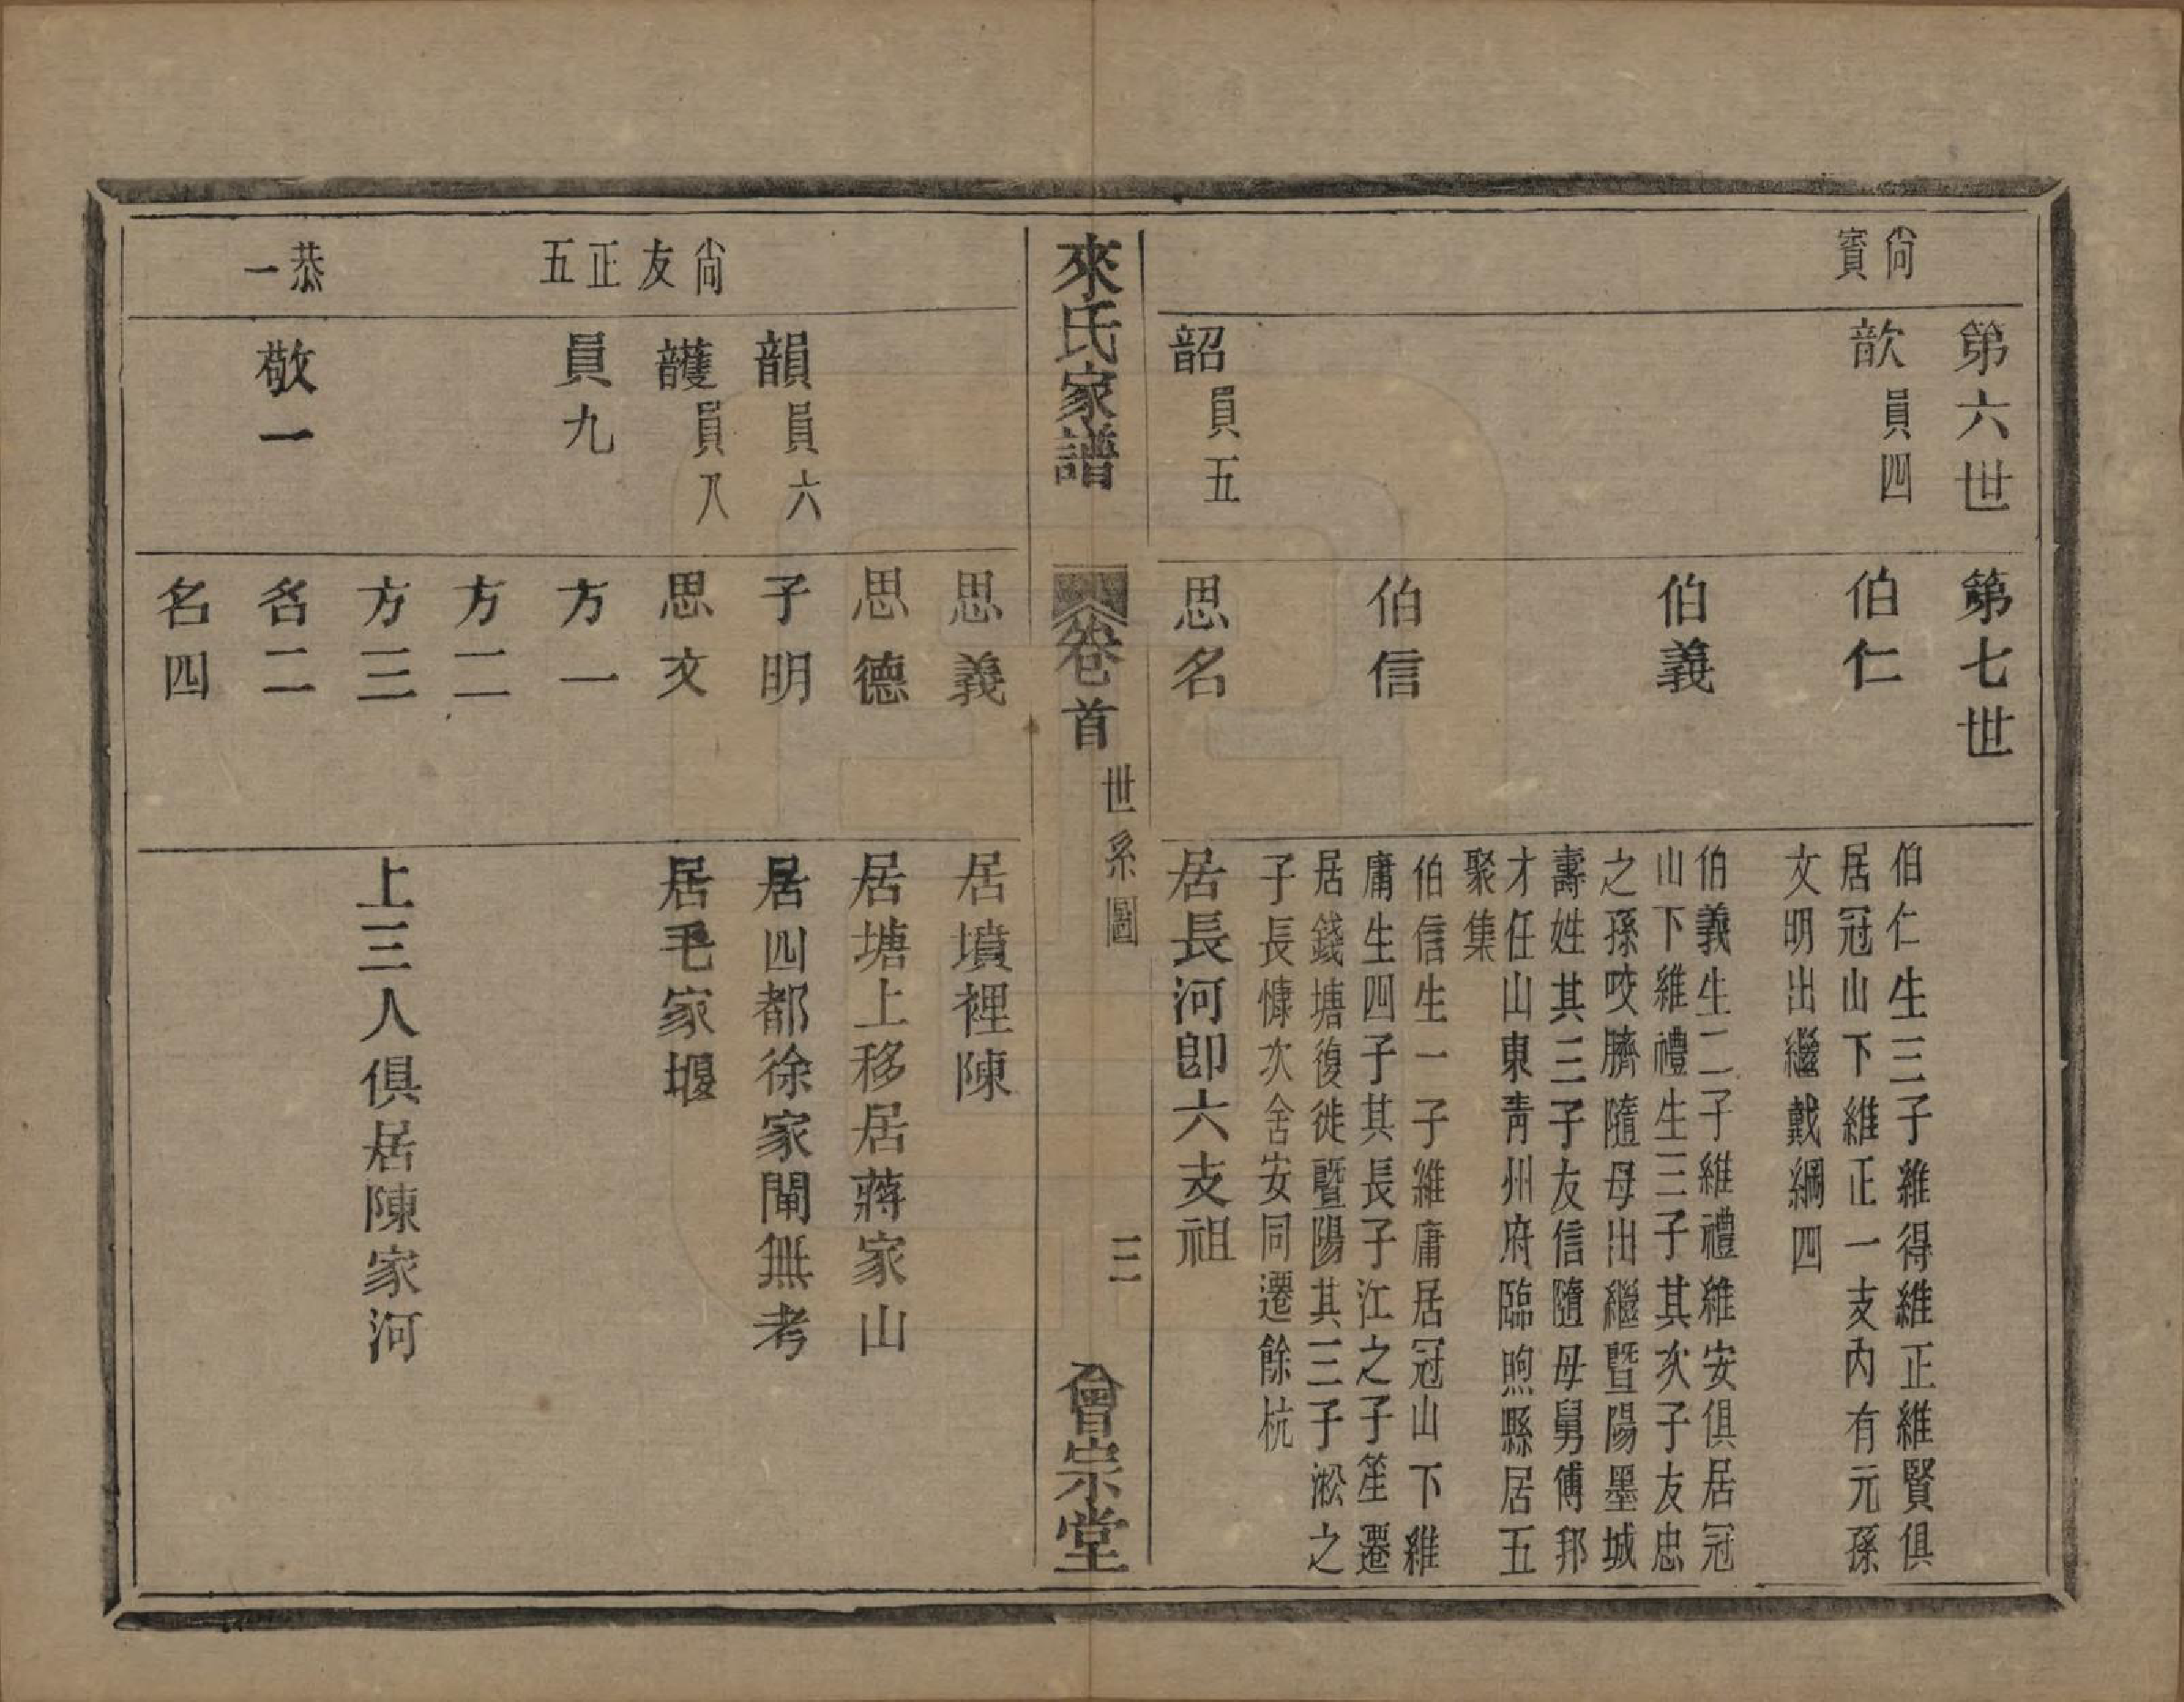 尚賓
第六世
歆員四
韶員五
第七世
伯仁
伯義
伯信
思名
伯仁生三子維得維正維賢俱
居冠山下維正一支內有元孫
文明出繼戴綱四
伯義生二子維禮維安俱居冠
山下維禮生三子其次子友忠
之孫咬臍隨母出繼暨陽墨城
壽姓其三子友信隨母舅傅邦
才任山東青州府臨煦縣居五
聚集
伯信生一子維庸居冠山下維
庸生四子其長子江之子笙遷
居錢塘復徙暨陽其三子淞之
子長慷次舍安同遷餘杭
居長河卽六支祖
來氏家譜
卷首
世系圖
三
會宗堂
尚友正五
恭一
韻員六
頀員八
員九
敬一
思義
思德
子明
思文
方一
方二
方三
名二
名四
居墳裡陳
居塘上移居蔣家山
居四都徐家閘無考
居毛家堰
上三人俱居陳家河